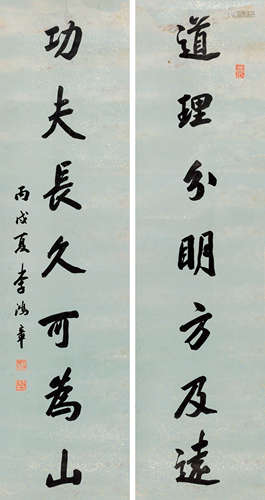 道理分明方及遠
功夫長久可為山
丙戌夏李鴻章